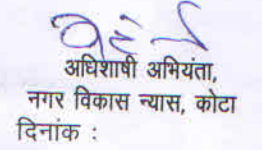 अधिशाषी अभियंता,
नगर विकास न्यास, कोटा
दिनांक :